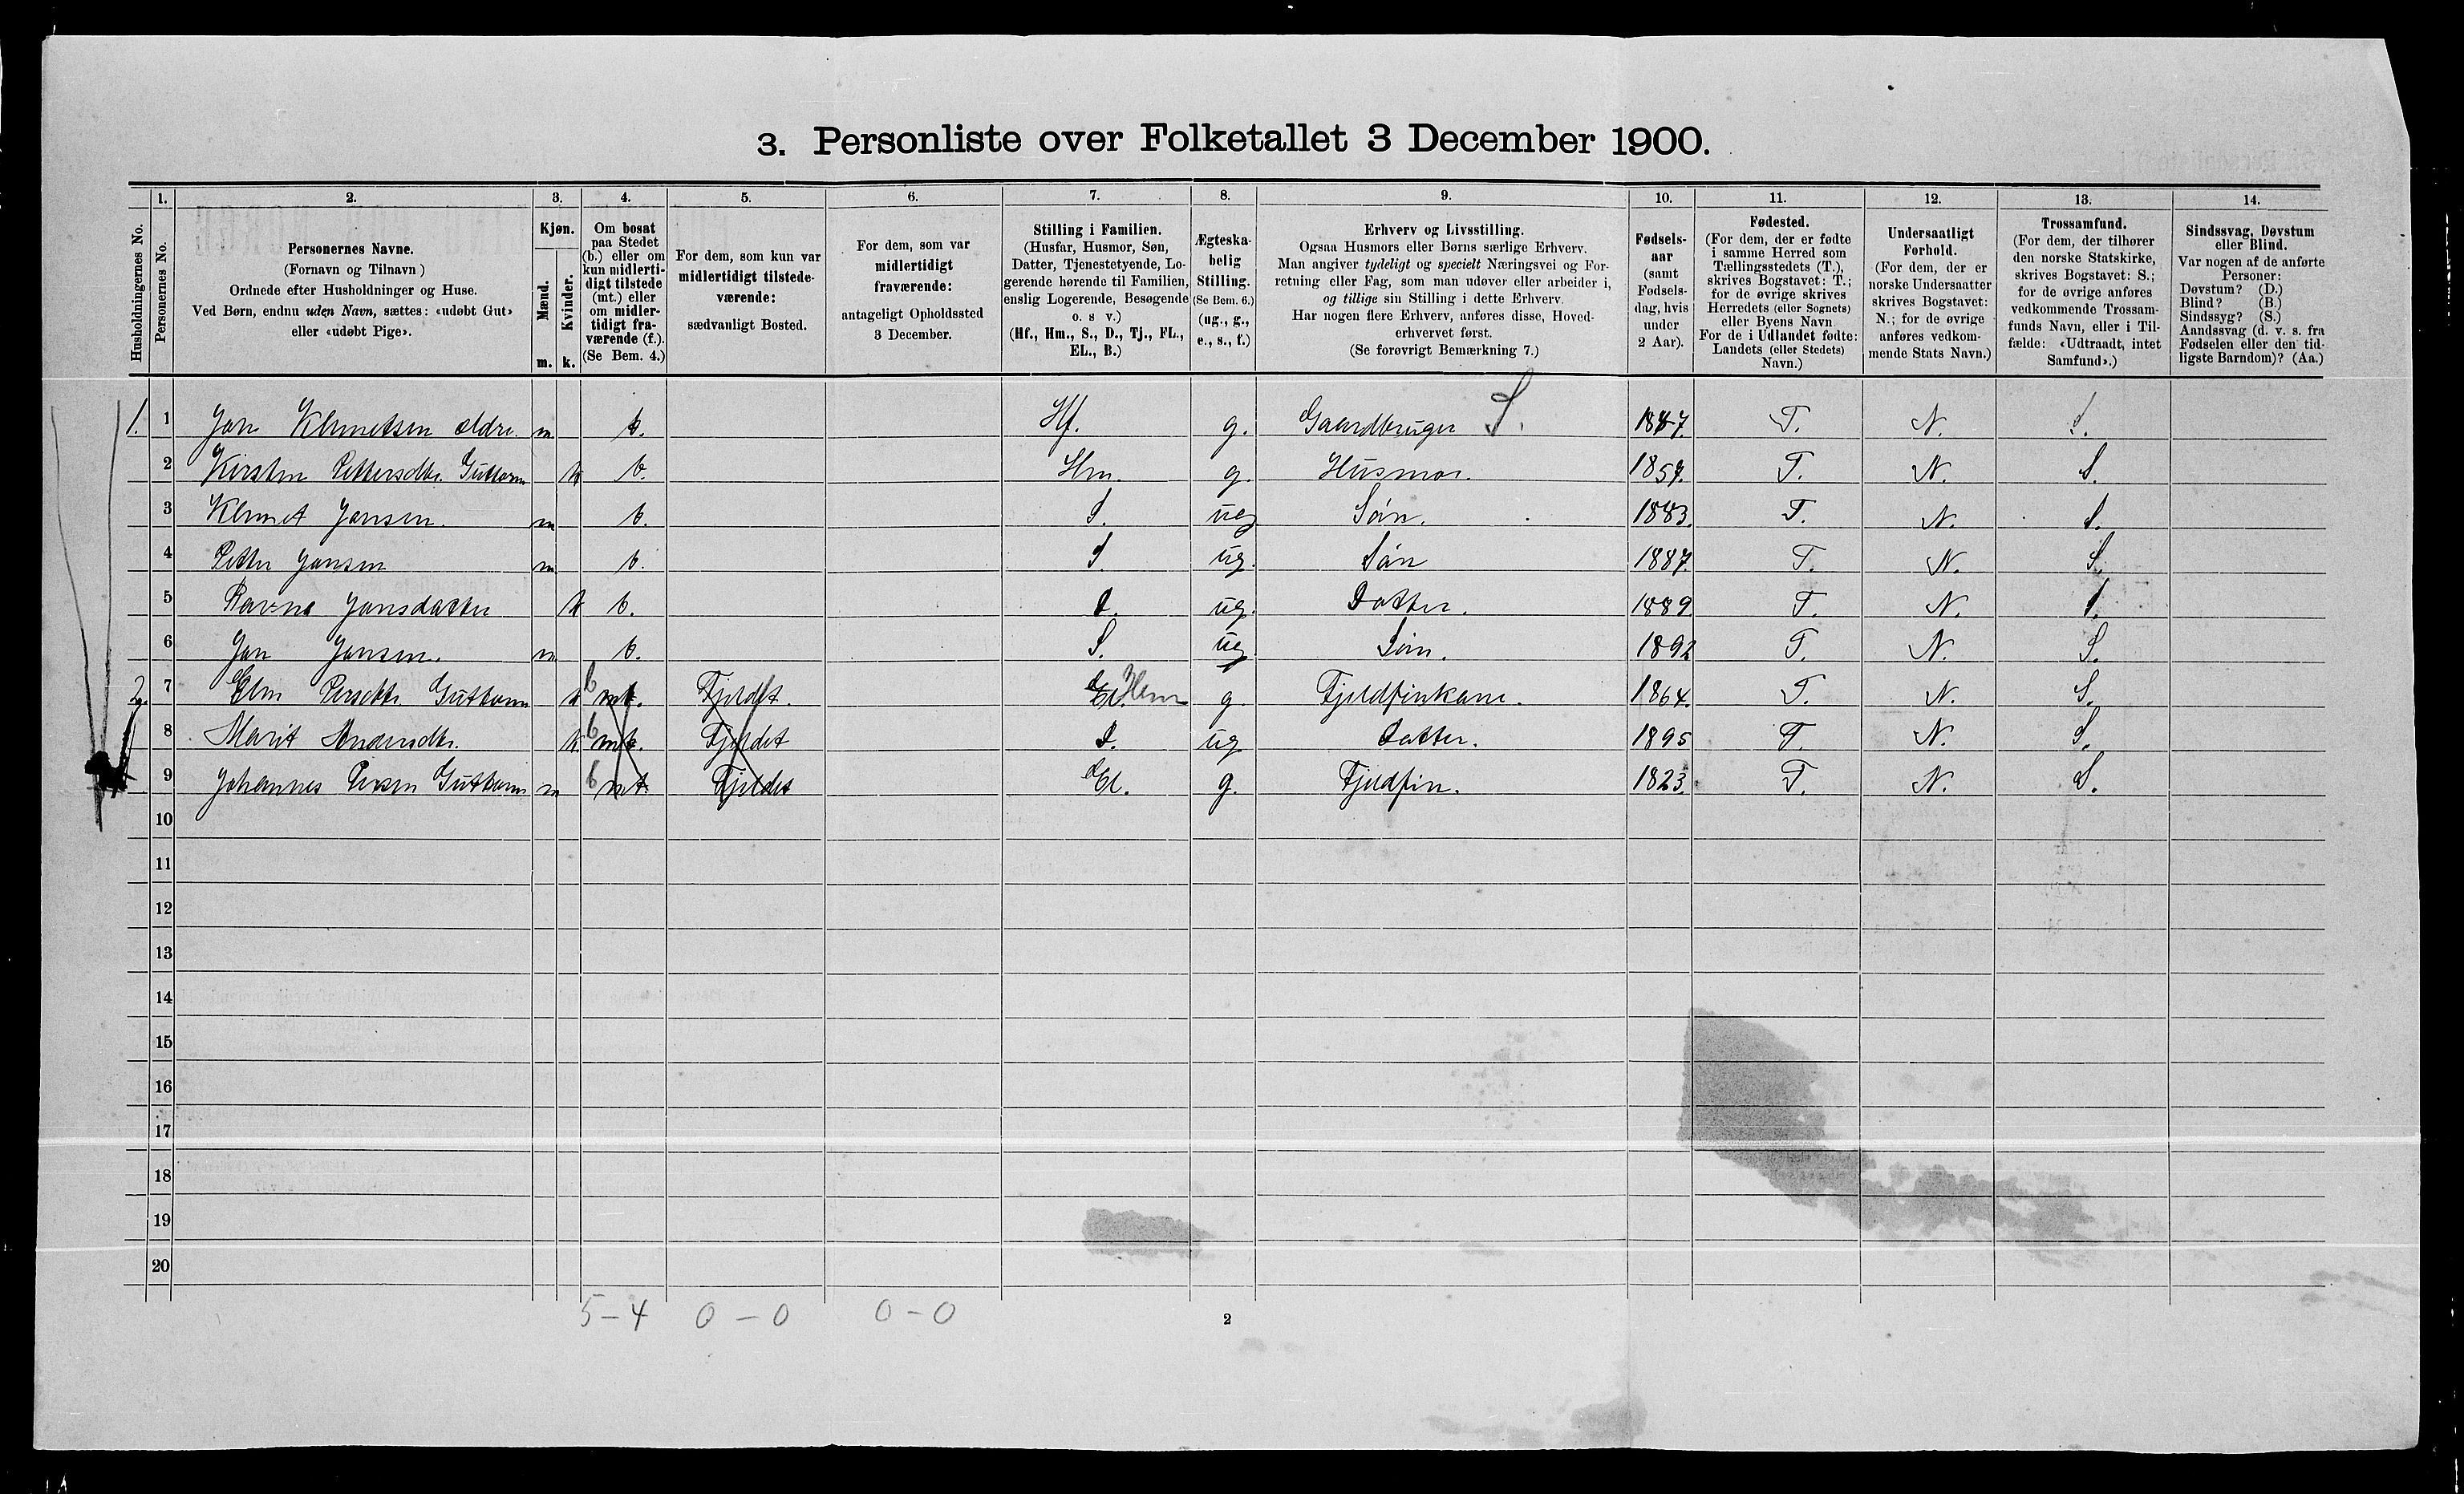 3. Personliste over Folketallet 3 December 1900.
Husholdningernes No.
1. Personernes No.
2. Personernes Navne.
(Fornavn og Tilnavn )
Ordnede efter Husholdninger og Huse.
Ved Børn, endnu uden Navn, sættes: «udøbt Gut»
eller «udøbt Pige».
3. Kjøn.
Mænd. m.
Kvinder. k.
4. Om bosat
paa Stedet
(b.) eller om
kun midlerti-
digt tilstede
(mt.) eller
om midler-
tidigt fra-
værende (f.).
(Se Bem. 4.)
5. For dem, som kun var
midlertidigt tilstede-
værende:
sædvanligt Bosted.
6. For dem, som var
midlertidigt
fraværende:
antageligt Opholdssted
3 December.
7. Stilling i Familien.
(Husfar, Husmor, Søn,
Datter, Tjenestetyende, Lo-
gerende hørende til Familien,
enslig Logerende, Besøgende
o. s v.)
(Hf., Hm., S., D., Tj., FL.,
EL., B.)
8. Ægteska-
belig
Stilling.
(Se Bem. 6.)
(ug., g.,
e., s., f.)
9. Erhverv og Livsstilling.
Ogsaa Husmors eller Børns særlige Erhverv.
Man angiver tydeligt og specielt Næringsvei og For-
retning eller Fag, som man udøver eller arbeider i,
og tillige sin Stilling i dette Erhverv.
Har nogen flere Erhverv, anføres disse, Hoved-
erhvervet først.
(Se forøvrigt Bemærkning 7.)
10. Fødsels-
aar
(samt
Fødsels-
dag, hvis
under
2 Aar).
11. Fødested.
(For dem, der er fødte
i samme Herred som
Tællingsstedets (T.),
skrives Bogstavet: T.;
for de øvrige skrives
Herredets (eller Sognets)
eller Byens Navn
For de i Udlandet fødte:
Landets (eller Stedets)
Navn.)
12. Undersaatligt
Forhold.
(For dem, der er
norske Undersaatter
skrives Bogstavet:
N.; for de øvrige
anføres vedkom-
mende Stats Navn.)
13. Trossamfund.
(For dem, der tilhører
den norske Statskirke,
skrives Bogstavet: S.;
for de øvrige anføres
vedkommende Trossam-
funds Navn, eller i Til-
fælde: «Udtraadt, intet
Samfund».)
14. Sindssvag, Døvstum
eller Blind.
Var nogen af de anførte
Personer:
Døvstum? (D.)
Blind? (B.)
Sindssyg? (S.)
Aandssvag (d. v. s. fra
Fødselen eller den tid-
ligste Barndom)? (Aa.)
1. 1 Jon Klemetsen ældre. m b. Hf. g. Gaardbruger S. 1847. T. N. S.
2 Kirsten Pettersdtr. Guttorm k b. Hm. g. Husmor. 1857. T. N. S.
3 Klemet Jonsen. m b. S. ug Søn. 1883. T. N. S.
4 Petter Jonsen m b. S ug. Søn 1887. T. N. S.
5 Jonsdatter k b. d. ug. Datter. 1889 T. N. S.
6 Jon Jonsen. m b. S. ug Søn. 1892 T. N. S.
2. 7 Elen Persdtr. Guttorm k b mt. Fjeldet. El. Hm g. Fjeldfinkone. 1864. T. N. S.
8 Marit Andersdtr. k b mt. Fjeldet d. ug datter. 1895 T. N. S.
9 Johannes Persen Guttorm m b mt. Fjeldet El. g. Fjeldfin. 1823. T. N. S.
10
11
12
13
14
15
16
17
18
19
20
5 - 4 0 - 0 0 - 0
2